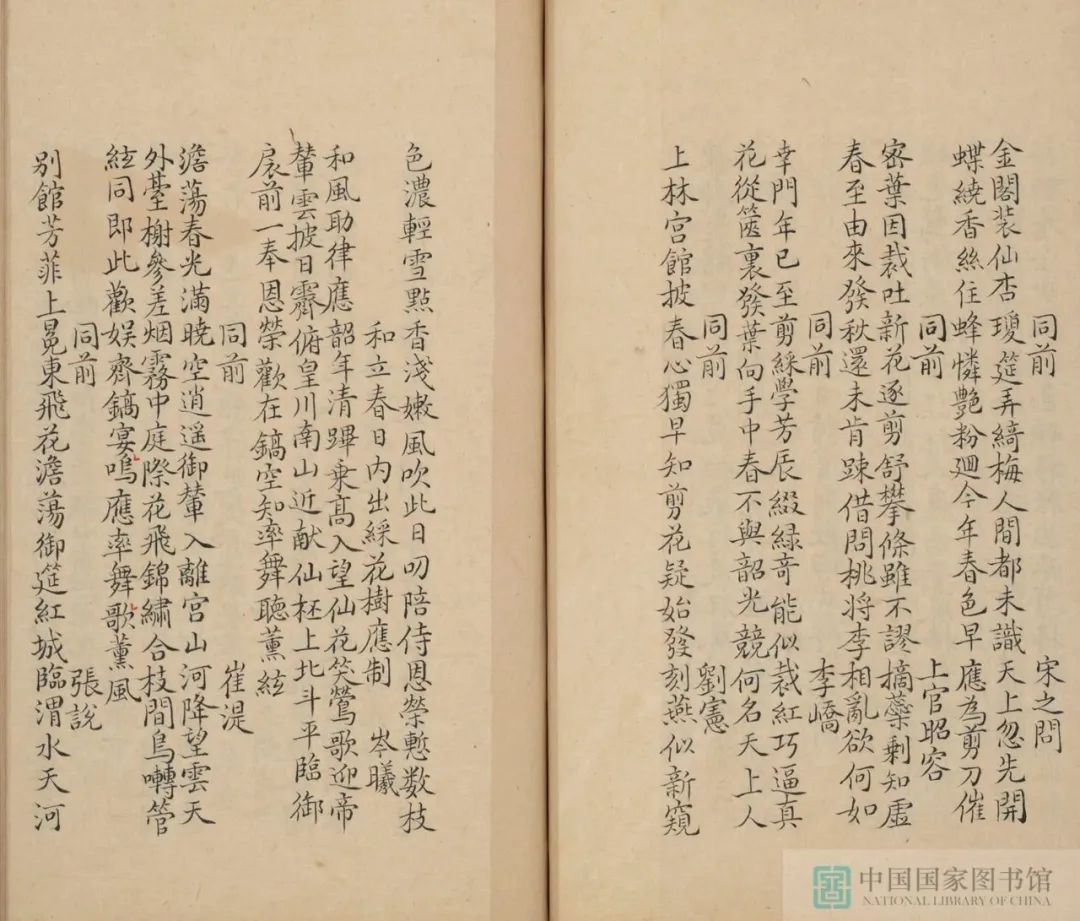 同前 宋之問
金閣装仙杏瓊筵弄綺梅人間都未識天上忽先開
蝶繞香絲住蜂憐艷粉廻今年春色早應為剪刀催
同前 上官昭容
密葉因裁吐新花逐剪舒攀條雖不謬摘蘂剰知虛
春至由來發秋還未肯踈借問桃将李相亂欲何如
同前 李嶠
幸門年已至剪綵學芳辰綴緑竒能似裁紅巧逼真
花從篋裏發葉向手中春不與韶光競何名天上人
同前 劉憲
上林宫館披春心獨早知剪花疑始發刻燕似新窺
色濃輕雪點香淺嫩風吹此日叨陪侍恩榮慙数枝
和立春日内出綵花樹應制 岑曦
和風助律應韶年清蹕乗髙入望仙花笑鶯歌迎帝
輦雲披日霽俯皇川南山近献仙柸上北斗平臨御
扆前一奉恩榮歡在鎬空知率舞聽薫絃
同前 崔湜
澹蕩春光滿曉空逍遥御輦入離宫山河降望雲天
外臺榭參差烟霧中庭際花飛錦繡合枝間鳥囀管
絃同即此歡娱齊鎬宴嗚應率舞歌薫風
同前 張說
别館芳菲上冕東飛花澹蕩御筵紅城臨渭水天河
中国国家图书馆
NATIONAL LIBRARY OF CHINA